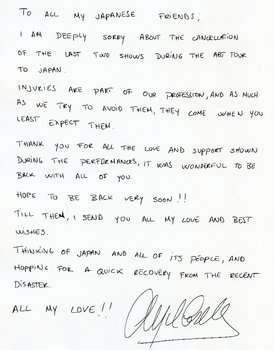 TO ALL MY JAPANESE FRIENDS;
I AM DEEPLY SORRY ABOUT THE CANCELLATION
OF THE LAST TWO SHOWS DURING THE ABT TOUR
TO JAPAN.
INJURIES ARE PART OF OUR PROFESSION, AND AS MUCH
AS WE TRY TO AVOID THEM, THEY COME WHEN YOU
LEAST EXPECT THEM.
THANK YOU FOR ALL THE LOVE AND SUPPORT SHOWN
DURING THE PERFORMANCES, IT WAS WONDERFUL TO BE
BACK WITH ALL OF YOU.
HOPE TO BE BACK VERY SOON!!
TILL THEM, I SEND YOU ALL MY LOVE AND BEST
WISHES.
THINKING OF JAPAN AND ALL OF ITS PEOPLE, AND
HOPPING FOR A QUICK RECOVERY FROM THE RECENT
DISASTER.
ALL MY LOVE!!